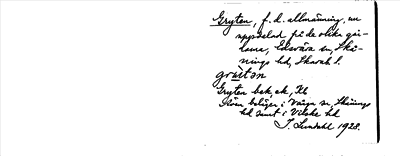 Gryten, f. d. allmänning, nu
uppodlad på de olika går-
darna, Edsvära sn, Skå-
nings hd, Skarab. l.
grỳtən
Gryten bek, ek, Jb
även beläget i Vånga sn, Skånings
hd samt i Vilske hd
J. Lundahl 1928.